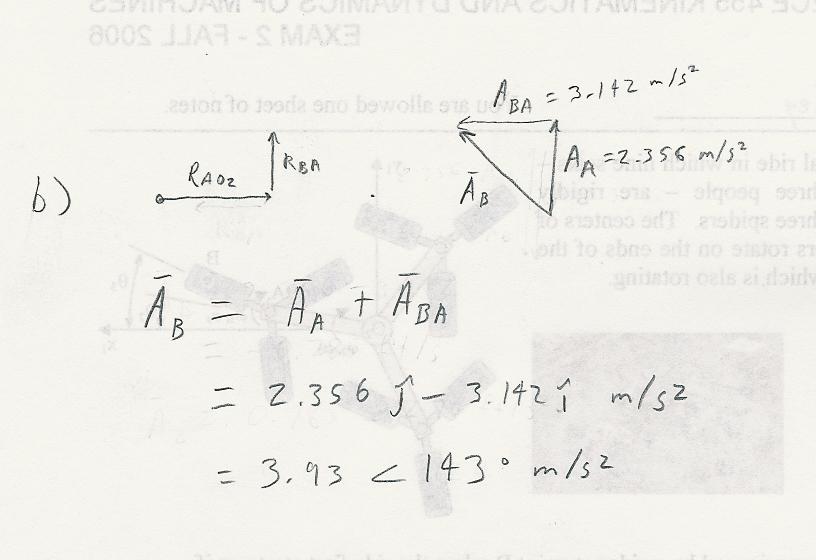 ECE 455 KINEMATICS AND DYNAMICS OF MACHINES
EXAM 2 - FALL 2006
You are allowed one sheet of notes.
A_BA = 3.142 m/s²
A_A = 2.356 m/s²
Ā_B
b) R_AO2 R_BA
al ride in which nine
three people – are rigidly
three spiders. The centers of
rotate on the ends of the
which is also rotating.
Ā_B = Ā_A + Ā_BA
= 2.356 ĵ - 3.142 î m/s²
= 3.93 < 143° m/s²